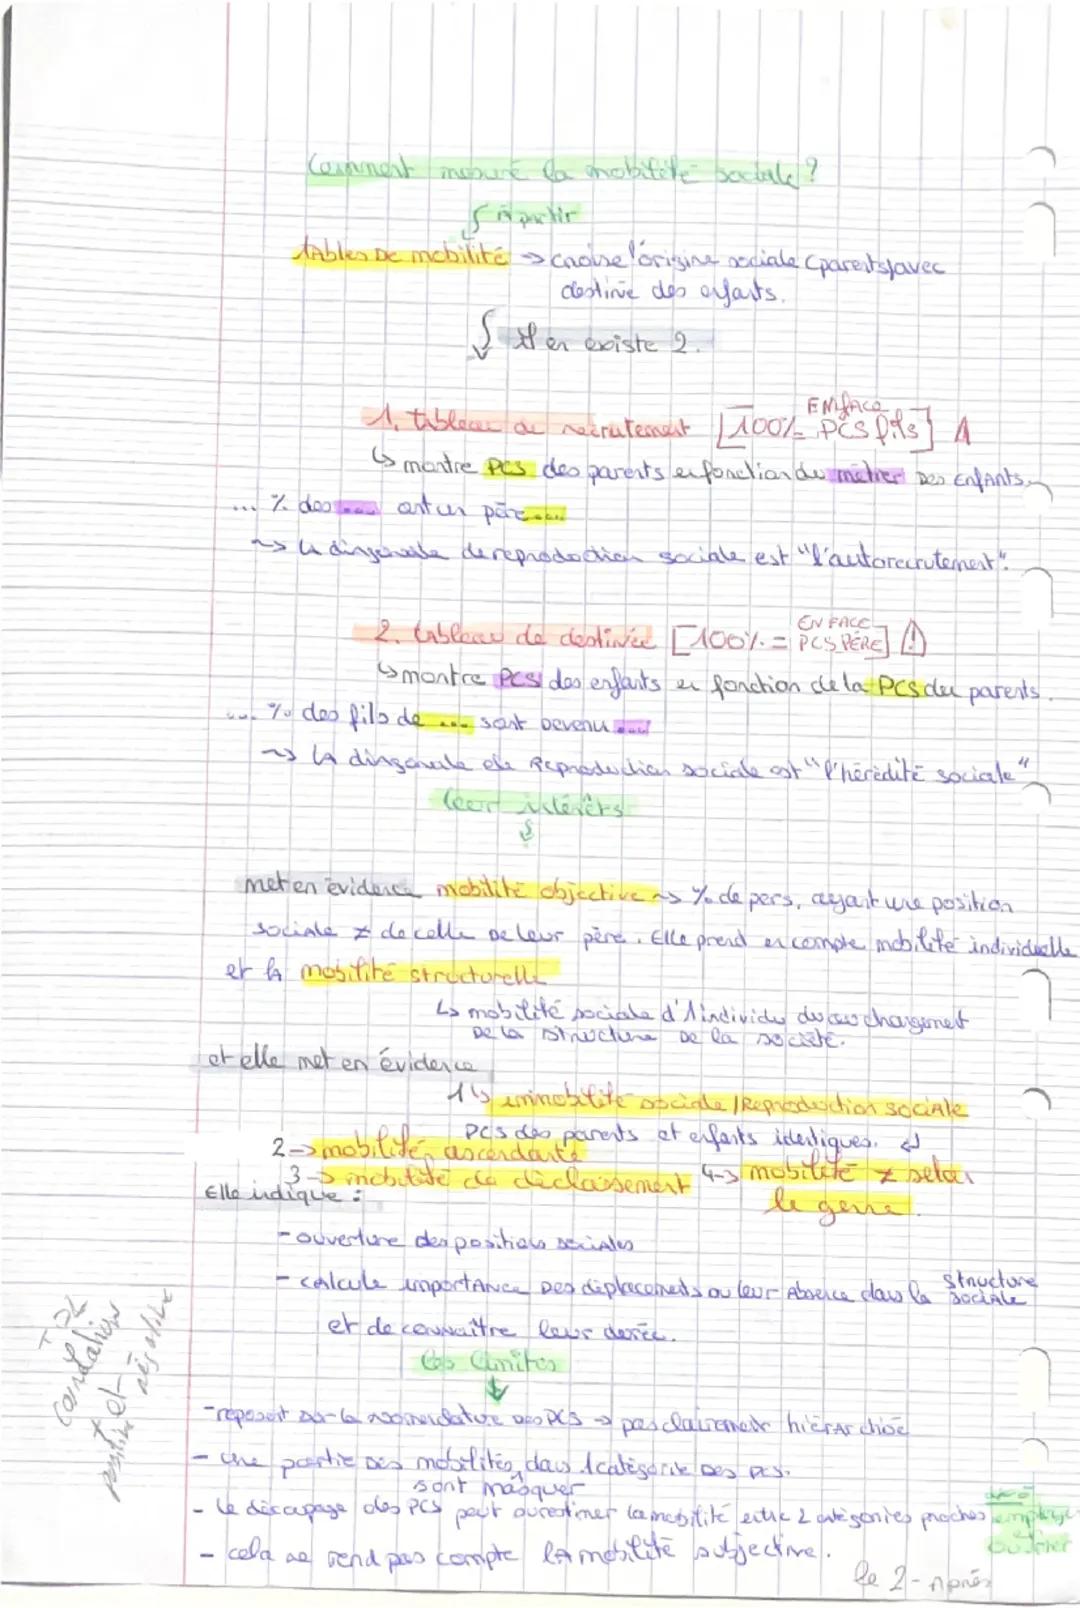 Comment mesuré la mobilité sociale ?
à partir
tables De mobilité → croise l'origine sociale (parents) avec
destinée des enfants.
Il en existe 2.
1. tableau de recrutement [100% EN FACE PCS fils]
↳ montre PCS des parents en fonction du métier Des Enfants.
... % des .... ont un père ....
~> la diagonale de reproduction sociale est "l'autorecrutement".
2. tableau de destinée [100% = EN FACE PCS PÈRE] (!)
↳ montre PCS des enfants en fonction de la PCS du parents.
... % des fils de .... sont Devenu ....
~> la diagonale de Reproduction sociale est "l'hérédité sociale"
leurs intérêts
met en évidence mobilité objective ~> % de pers. ayant une position
sociale ≠ de celle De leur père. Elle prend en compte mobilité individuelle
et la mobilité structurelle
↳ mobilité sociale d'1 individu du au changement
De la structure De la société.
et elle met en évidence
1 ↳ immobilité sociale / Reproduction sociale
PCS des parents et enfants identiques.
2 → mobilité ascendante
3 → mobilité de déclassement 4 → mobilité ≠ selon
le genre.
Elle indique :
- ouverture des positions sociales
- calcule importance Des déplacements ou leur Absence dans la structure sociale
et de connaître leur
les limites
- reposent sur la nomenclature Des PCS → pas clairement hiérarchisé
- une partie Des mobilités dans 1 catégorie Des PCS.
sont masquer
- le découpage des PCS peut surestimer la mobilité entre 2 catégories proches employé
et
ouvrier
- cela ne rend pas compte la mobilité subjective.
le 2 - Après
corrélations
positive et
négative